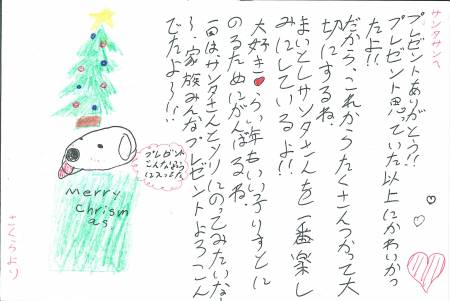 サンタサンへ
プレゼントありがとう!!
プレゼント思っていた以上にかわいかっ
たよ!!
だから、これからたくさんつかって大
切にするね。
まいとしサンタさんを一番楽し
みにしているよ!!
大好き♥らい年もいい子りすとに
のるためにがんばるね。
一回はサンタさんとソリにのってみたいな
〜、家族みんなプレゼントよろこん
でたよ〜!!
プレゼント
こんなかんじ
Merry
chrism
as,
さくらより